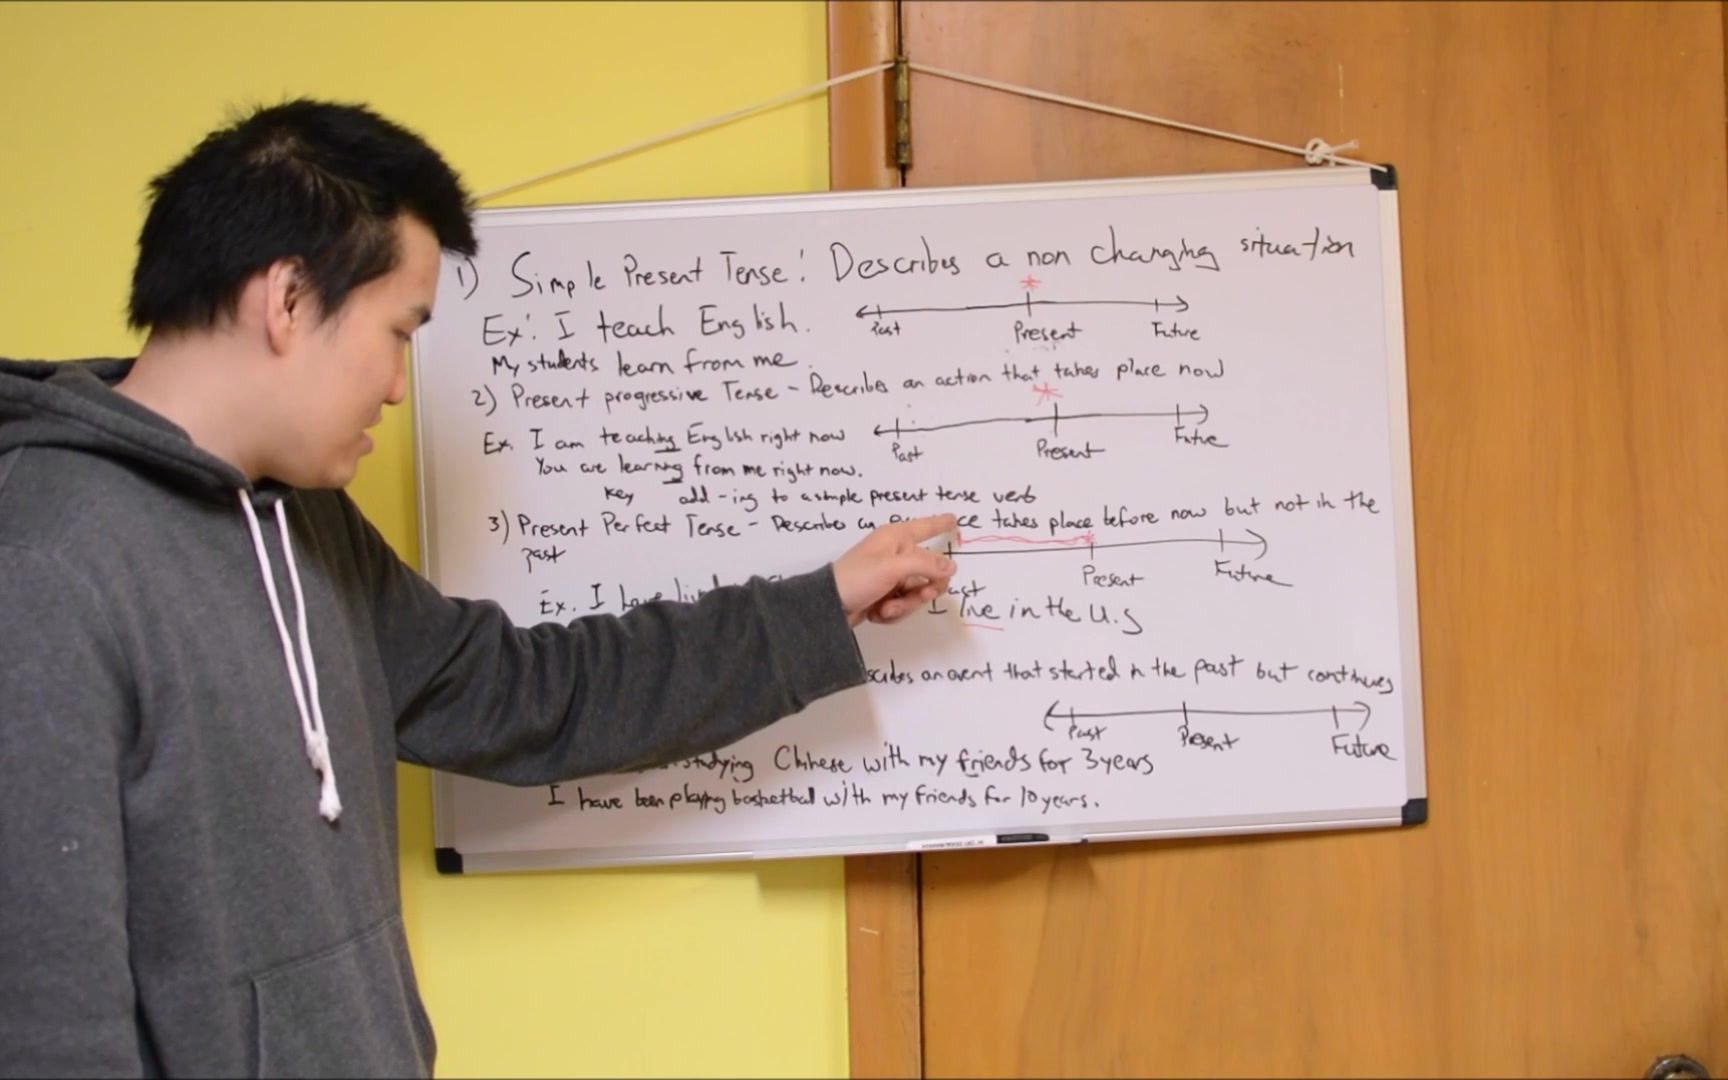 1) Simple Present Tense: Describes a non changing situation
Ex: I teach English.
Past Present Future
My students learn from me.
2) Present progressive Tense - Describes an action that takes place now
Ex. I am teaching English right now
Past Present Future
You are learning from me right now.
Key add -ing to a simple present tense verb
3) Present Perfect Tense - Describes an takes place before now but not in the
past
Present Future
Ex. I have
I live in the U.S
an event that started in the past but continues
Past Present Future
studying Chinese with my friends for 3 years
I have been playing basketball with my friends for 10 years.